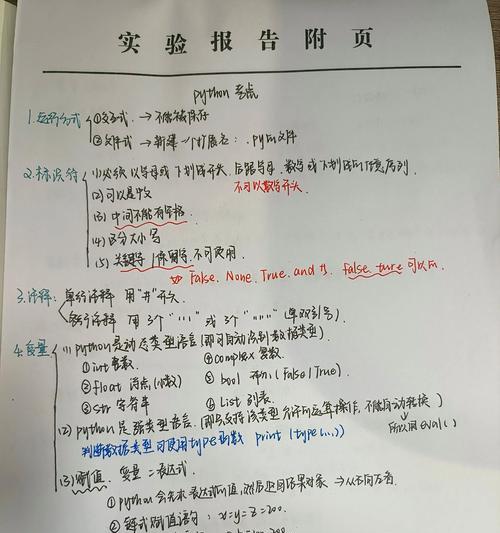 实验报告附页
python 考点
1.运行方式 ①交互式 → 不能被保存
②文件式 → 新建一个扩展名: .py的文件
2.标识符 (1)必须以字母或下划线开头,后跟字母、数字或下划线的任意序列
不可以数字开头
(2)可以是中文
(3)中间不能有空格
(4)区分大小写
(5)关键字/保留字,不可使用
如 False、None、True、and 等, false、ture 可以用
3.注释: 单行注释 用"#"开头
多行注释 用3个 "'''" 或3个 """"" (单双引号)
4.变量 (1) python是动态类型语言(即可自动识别数据类型)
①int 整数 ④complex 复数
②float 浮点(小数) ⑤bool 布尔(False|True)
③str 字符串 ⑥List 列表
(2) python 是强类型语言 (即只支持该类型允许的运算操作,不能自动转换)
判断数据类型可使用type函数 print (type(...)) 所以用 eval()
(3)赋值 变量=表达式
①python会先求表达式的值,然后返回结果对象 → 从右向左看
②链式赋值语句: x=y=z=200